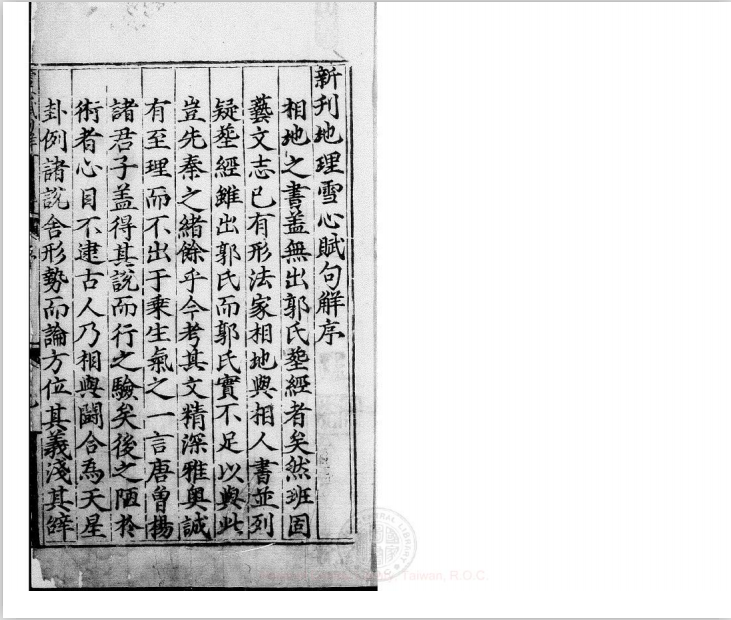 新刋地理雪心賦句解序
相地之書盖無出郭氏塟經者矣然班固
藝文志已有形法家相地與相人書並列
疑塟經雖出郭氏而郭氏實不足以與此
豈先秦之緒餘乎今考其文精深雅奥誠
有至理而不出于乗生氣之一言唐曾楊
諸君子盖得其説而行之驗矣後之陋於
術者心目不逮古人乃相與闘合為天星
卦例諸説舍形勢而論方位其義淺其辤
Taiwan, R.O.C.